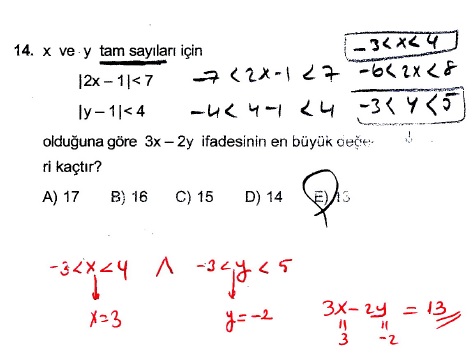 14. x ve y tam sayıları için
|2x – 1| < 7
|y – 1| < 4
-7 < 2x-1 < 7
-4 < y-1 < 4
-3 < x < 4
-6 < 2x < 8
-3 < y < 5
olduğuna göre 3x – 2y ifadesinin en büyük değe-
ri kaçtır?
A) 17 B) 16 C) 15 D) 14 E) 13
-3 < x < 4 ∧ -3 < y < 5
x = 3 y = -2
3x - 2y = 13
3 -2